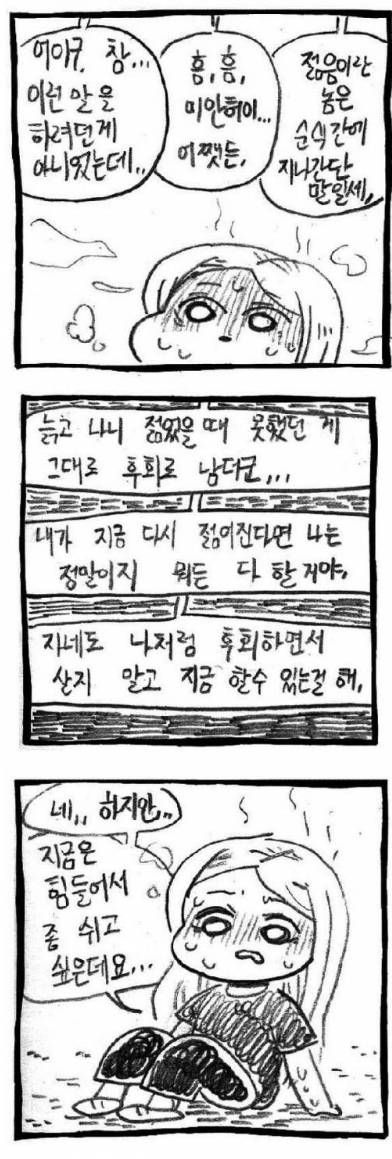 어이구, 참...
이런 말을
하려던게
아니었는데..
흠, 흠,
미안허이...
어쨌든,
젊음이란
놈은
순식간에
지나간단
말일세,
늙고 나니 젊었을 때 못했던 게
그대로 후회로 남더군...
내가 지금 다시 젊어진다면 나는
정말이지 뭐든 다 할 거야,
자네도 나처럼 후회하면서
살지 말고 지금 할수 있는걸 해,
네,, 하지만,..
지금은
힘들어서
좀 쉬고
싶은데요...